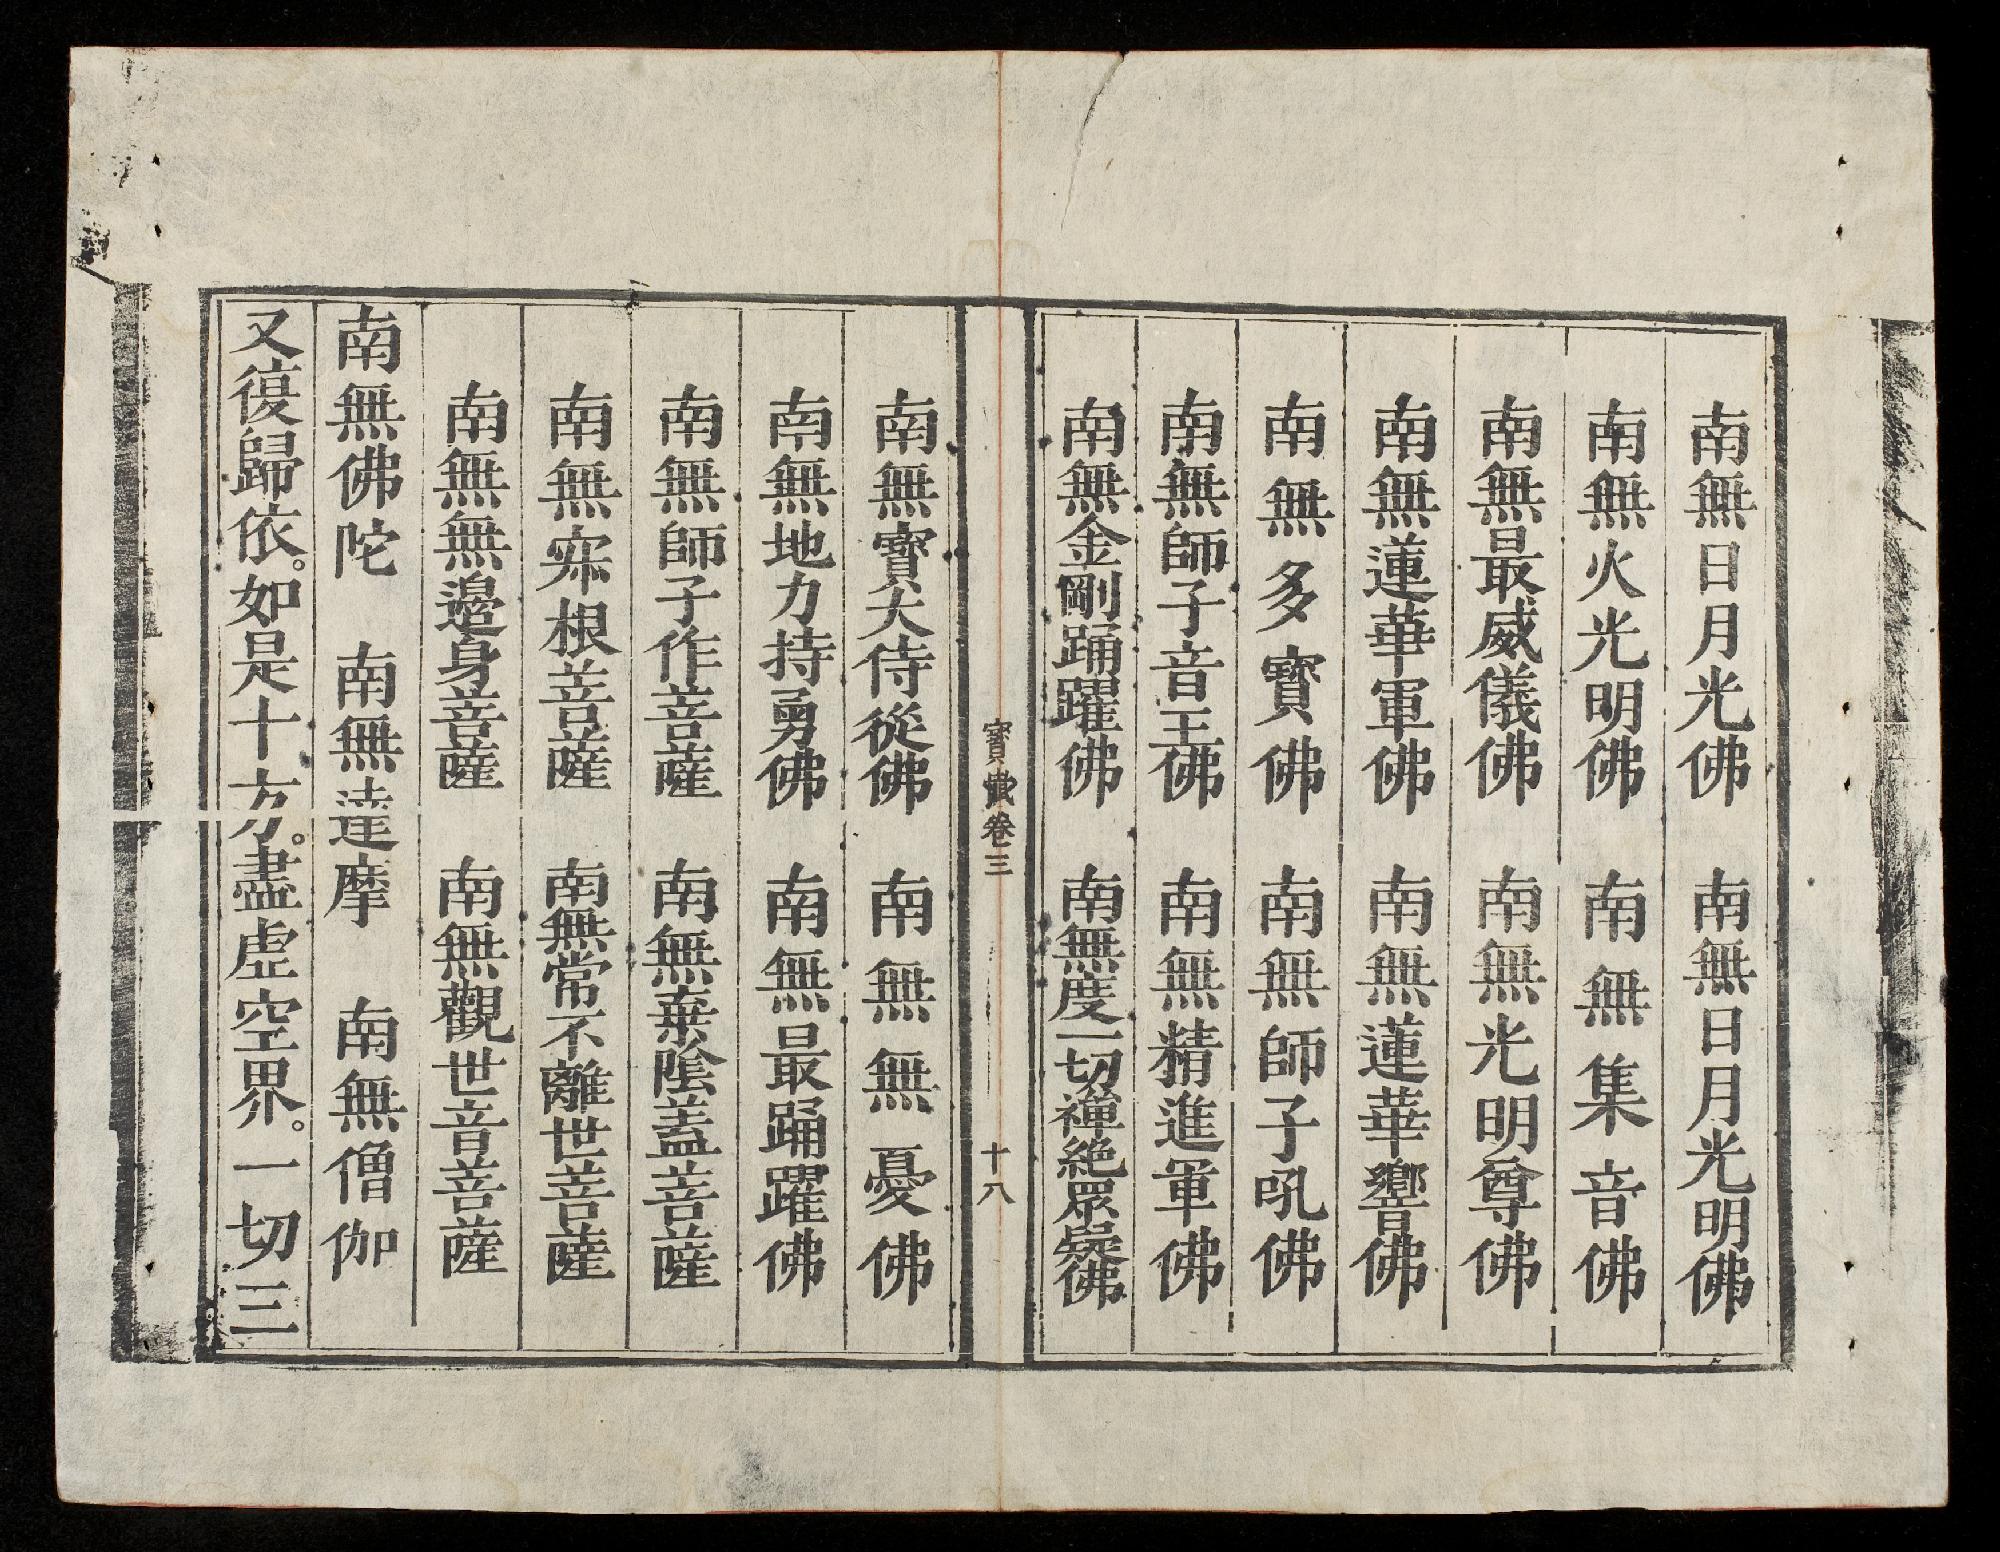 南無日月光佛　南無日月光明佛
南無火光明佛　南無集音佛
南無最威儀佛　南無光明尊佛
南無蓮華軍佛　南無蓮華響佛
南無多寶佛　南無師子吼佛
南無師子音王佛　南無精進軍佛
南無金剛踊躍佛　南無度一切禪絶眾疑佛
寶懺卷三　十八
南無寶大侍從佛　南無無憂佛
南無地力持勇佛　南無最踊躍佛
南無師子作菩薩　南無棄陰蓋菩薩
南無寂根菩薩　南無常不離世菩薩
南無無邊身菩薩　南無觀世音菩薩
南無佛陀　南無達摩　南無僧伽
又復歸依。如是十方。盡虛空界。一切三